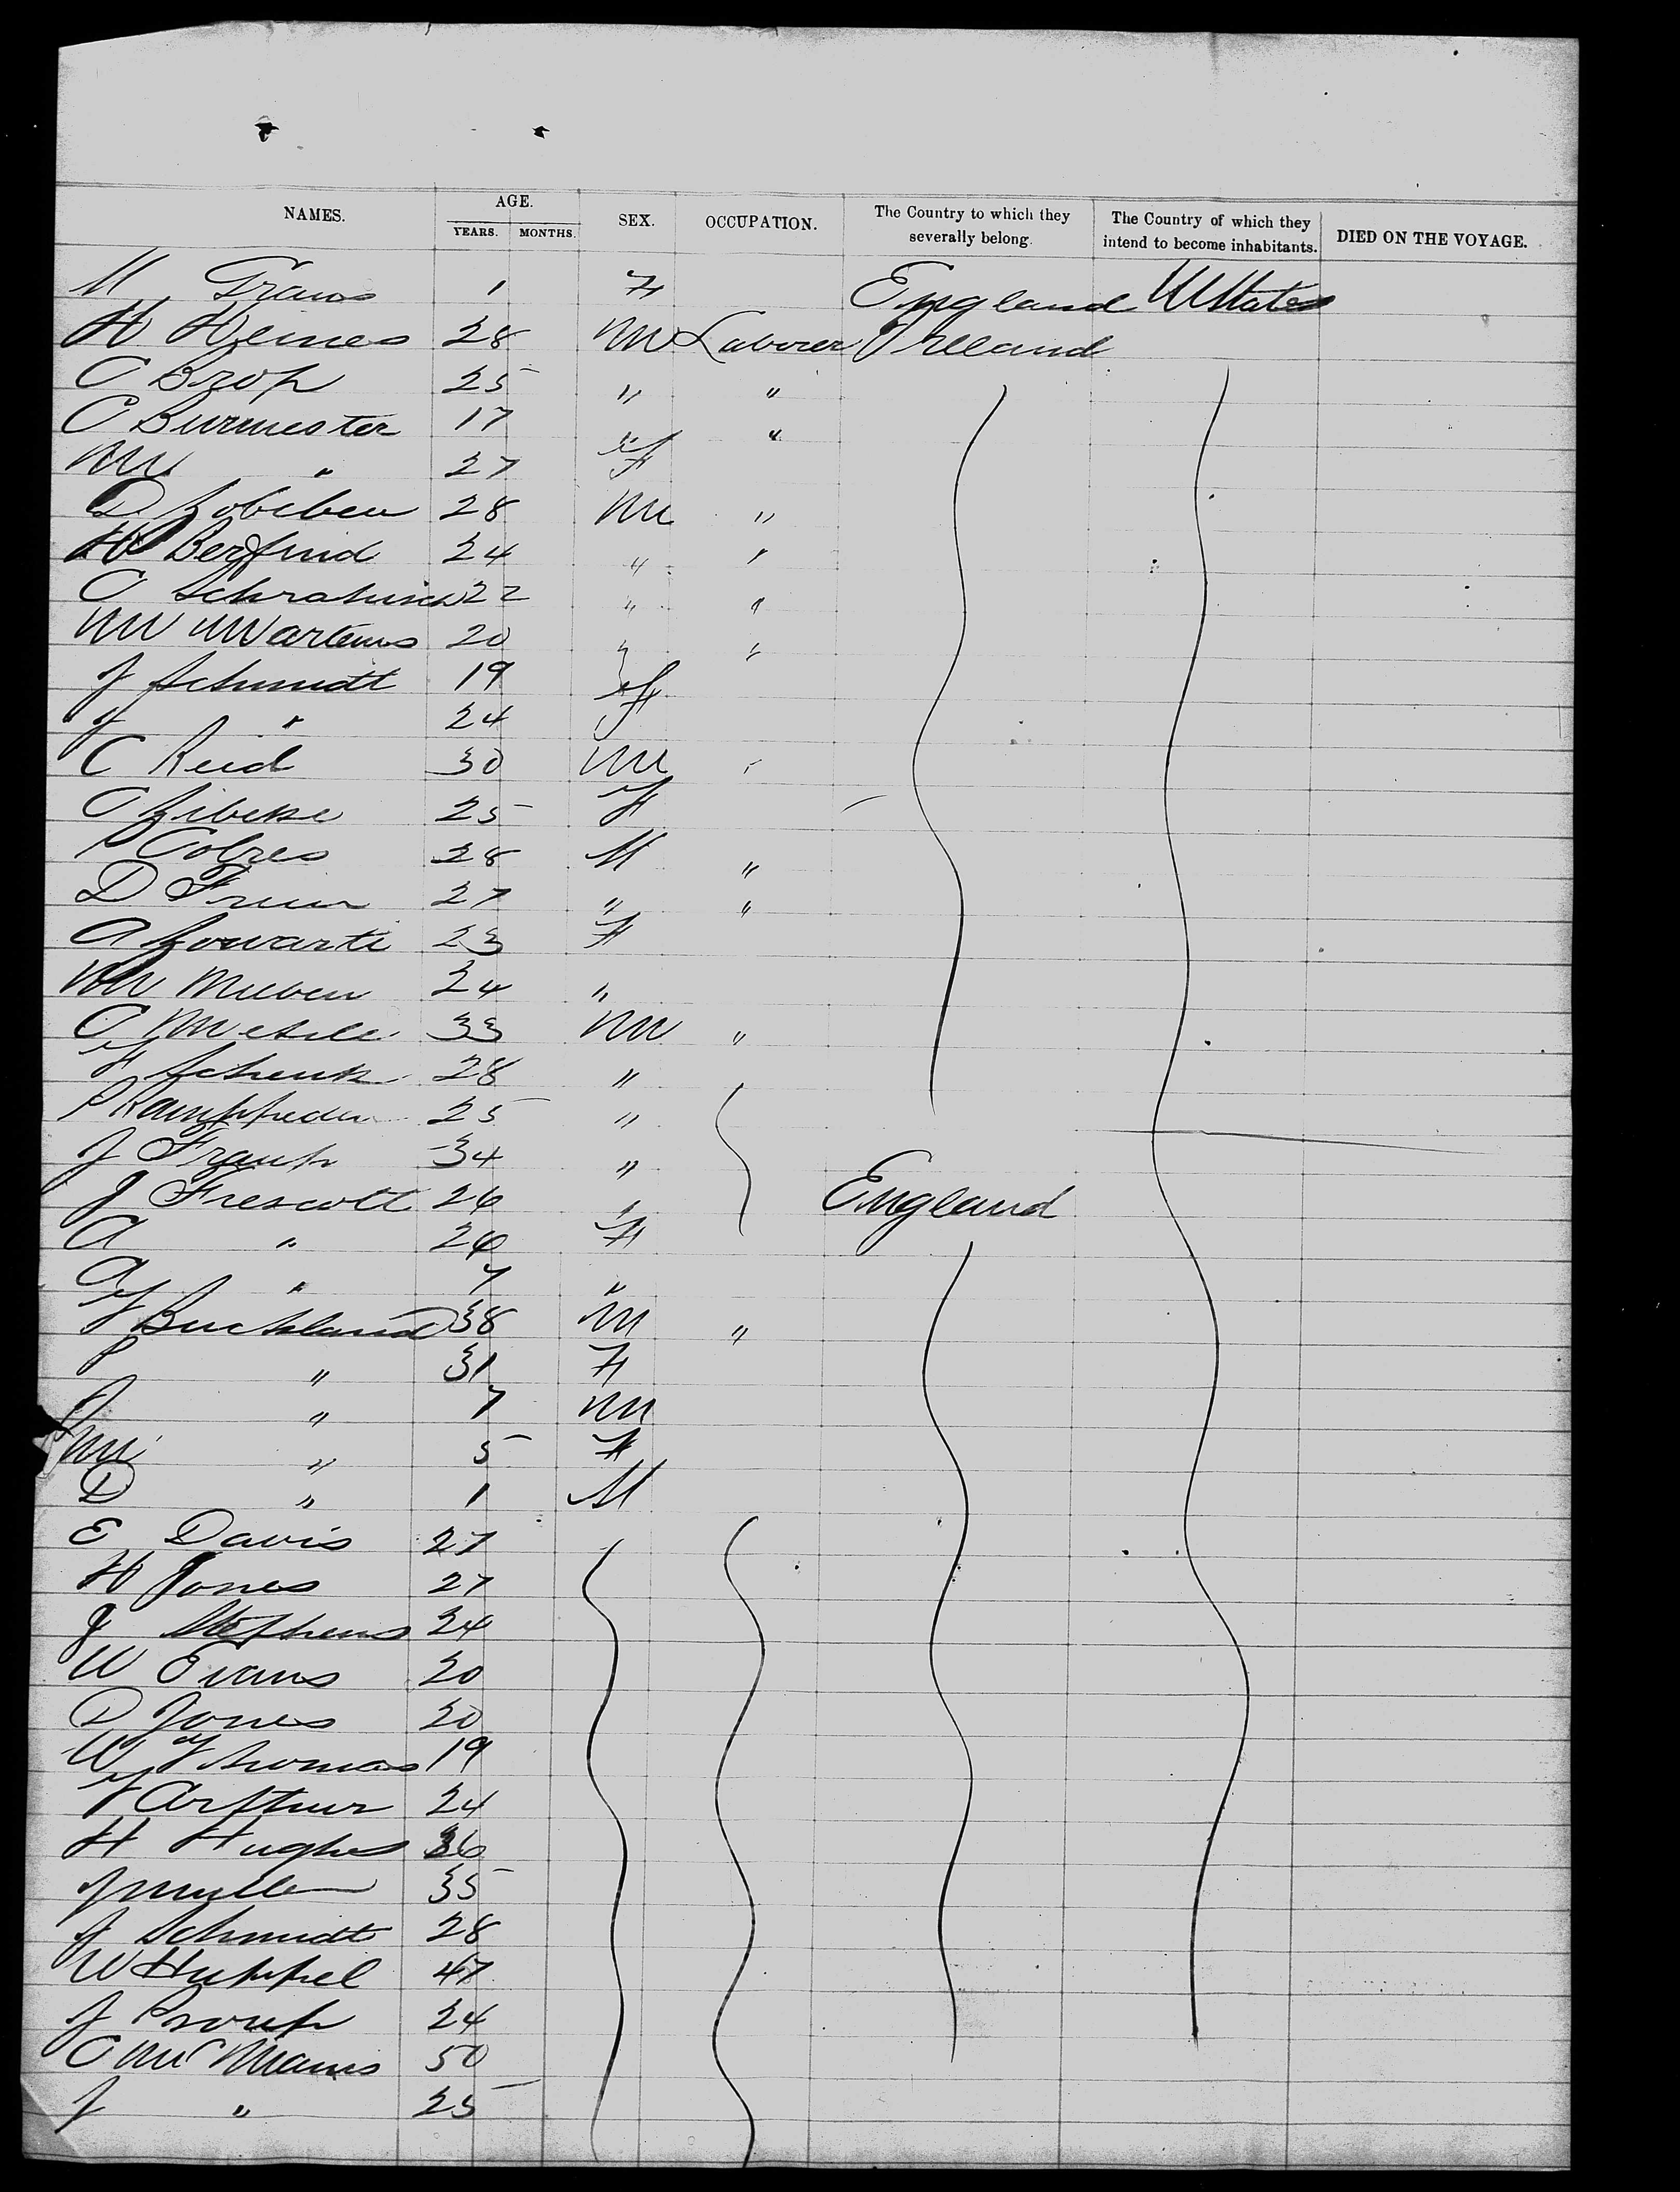 NAMES. AGE. YEARS. MONTHS. SEX. OCCUPATION. The Country to which they severally belong. The Country of which they intend to become inhabitants. DIED ON THE VOYAGE.
M 1 F England UStates
H Heines 28 M Laborer Ireland
C Brop 25 " "
C Burmester 17 " "
M " 27 F
D 28 M "
H Bergfrid 24 " "
C 22 " "
M Martens 20 " "
J Schmidt 19 "
J " 24 F
C Reid 30 M "
C 25 F
P 28 M "
D 27 " "
A 23 F
M 24 "
C 33 M "
F Schenk 28 "
P 25 "
J Frank 34 "
J Frescott 26 " England
A " 26 F
A " 7 "
J Buckland 38 M "
P " 31 F
J " 7 M
M " 5 F
D " 1 M
E Davis 27
H Jones 27
J Stephens 24
W Evans 20
D Jones 20
W Thomas 19
J Arthur 24
H Hughes 36
J Muller 35
J Schmidt 28
W Huppel 47
J Proup 24
C McManis 50
J " 25